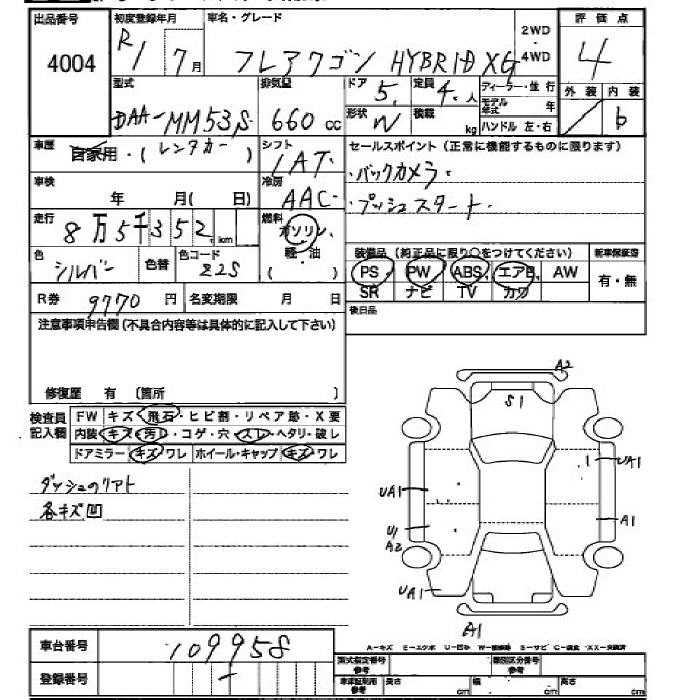 出品番号 初度登録年月 車名・グレード 2WD 評価点
4004 R1 7月 フレアワゴン HYBRID XG 4WD 4
型式 排気量 ドア 定員 ディーラー・並行 外装 内装
DAA-MM53S 660 cc 5 4人 モデル年式 年 b
形状 W 積載 kg ハンドル 左・右
車歴 自家用・(レンタカー) シフト セールスポイント(正常に機能するものに限ります)
IAT ・バックカメラ・
車検 年 月(日) 冷房 ・プッシュスタート・
AAC
走行 8万5千352 km 燃料 ガソリン 装備品(純正品に限り○をつけてください) 新車保証書
軽・油 PS PW ABS エアB AW 有・無
色 シルバー 色替 色コード Z2S ( ) SR ナビ TV カワ
R券 9770円 名変期限 月 日 後日品
注意事項申告欄(不具合内容等は具体的に記入して下さい)
修復歴 有 〔箇所 〕
検査員記入欄 FW キズ・飛石・ヒビ割・リペア跡・X要
内装 キズ・汚レ・コゲ・穴・スレ・ヘタリ・破レ
ドアミラー キズ・ワレ ホイール・キャップ キズ・ワレ
各キズ凹
A2
S1
UA1
UA1
A1
U1
A2
UA1
A1
A-キズ E-エクボ U-凹み
車台番号 109958
登録番号 型式指定番号 類別区分番号
長さ cm 幅 cm 高さ cm